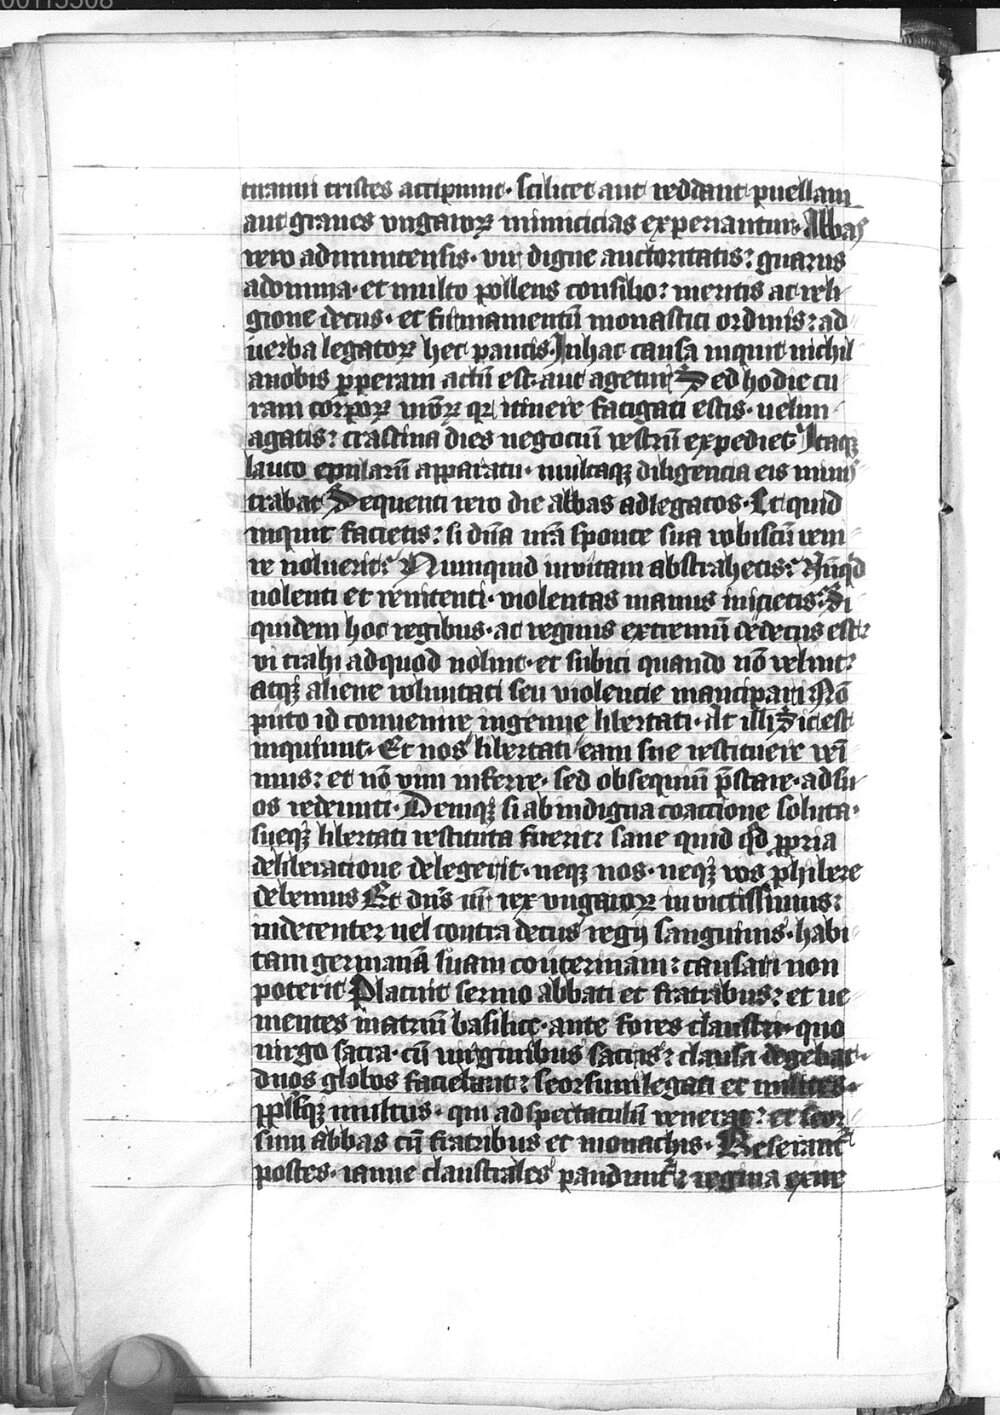 00113308
tiranni tristes accipiunt· scilicet aut reddant puellam
aut graues vngaroꝝ inimicicias experiantur· Abbas
vero admuntensis· vir digne auctoritatis: gnarus
adomnia· et multo pollens consilio: mentis ac reli-
gione decus· et firmamentū monastici ordinis: ad
uerba legatoꝝ hec paucis. In hac causa inquit nichil
anobis ꝑperam actū est· aut agetur. Sed hodie cu-
ram corꝑoꝝ vr̄oꝝ qꝛ itinere fatigati estis· uelim
agatis: crastina dies negociū vestrū expediet. Itaqꝫ
lauto epularū apparatu· multaqꝫ diligencia eis minis-
trabat. Sequenti vero die abbas adlegatos· Et quid
inquit facietis: si dn̄a vr̄a sponte sua vobiscū veni-
re noluerit: Numquid inuitam abstrahetis: Nūqd
nolenti et renitenti· violentas manus inicietis: Si
quidem hoc regibus· ac reginis extremū dedecus est:
vi trahi adquod nolint· et subici quando nō velint:
atqꝫ aliene voluntati seu violencie mancipari. Nō
puto id conuenire ingenue libertati· At illi Sic est
inquiunt· Et nos libertati eam sue restituere veni-
mus: et nō vim inferre· sed obsequiū p̄stare· adsu-
os redeunti· Deniqꝫ si ab indigna coactione soluta·
sueqꝫ libertati restituta fuerit: sane quid qd ꝓpria
deliberatione delegerit· neqꝫ nos· neqꝫ vos ꝓhibere
debemus Et dn̄s nr̄ rex vngaroꝝ inuictissimus:
indecenter uel contra decus regij sanguinis· habi-
tam germanā suam conterminam: causari non
poterit Placuit sermo abbati et fratribus: et ve-
nientes in atriū basilice· ante fores claustri· quo
uirgo sacra· cū uirginibus sacris: clausa degebat·
duos globos faciebant: seorsum legati et milites·
ppl̄sqꝫ multus· qui ad spectaculū venerat: et seor-
sum abbas cū fratribus et monachis· Reserant᷑
postes· ianue claustrales pandunt᷑: regina exire